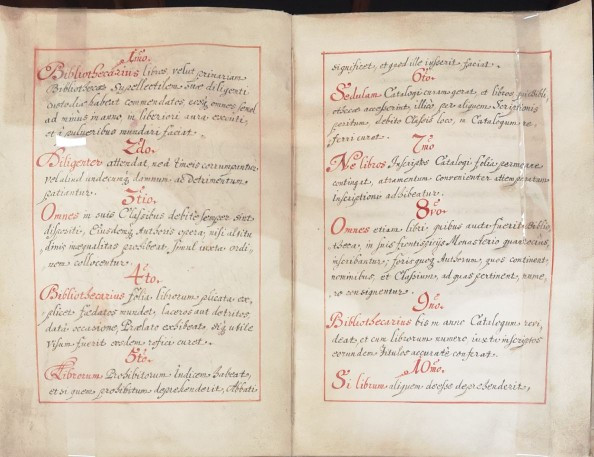 1mo.
Bibliothecarius libros velut primariam
Bibliothecæ Supellectilem sua diligenti
custodia habeat commendatos, eosq; omnes semel
ad minus in anno, in liberiori aura excuti,
et à pulveribus mundari faciat.
2do.
Diligenter attendat, ne à tineis corrumpantur,
vel aliud undecunq; damnum ac detrimentum
patiantur.
3tio.
Omnes in suis Classibus debitè semper sint
dispositi, Ejusdemq; Authoris opera, nisi altitu
dinis inæqualitas prohibeat, simul iuxta ordi,
nem collocentur.
4to.
Bibliothecarius folia librorum plicata ex,
plicet, fædatos mundet, laceros aut detritos,
datâ occasione, Prælato exhibeat, siq; utile
visum fuerit eosdem refici curet.
5to.
Librorum Prohibitorum Indicem habeat,
et si quem prohibitum deprehenderit, Abbati
significet, et quod ille iusserit faciat.
6to.
Sedulam Catalogi curam gerat, et libros, qui Bibli,
othecæ accesserint, illicò per aliquem Scriptionis
peritum debito Classis loco, in Catalogum re,
ferri curet.
7mo
Ne libros Inscriptos Catalogi folia permeare
contingat, atramentum convenienter attemperatum
inscriptioni adhibeatur.
8vo.
Omnes etiam libri, quibus aucta fuerit Biblio,
theca, in suis frontispicijs Monasterio quantocius,
inscribantur; forisq; Authorum, quos continent,
nominibus, et Classium, ad quas pertinent, nume,
ro consignentur.
9no.
Bibliothecarius bis in anno Catalogum revi,
deat, et cum librorum numero iuxta inscriptos
eorumdem titulos accuratè conferat.
10mo.
Si librum aliquem deesse deprehenderit,